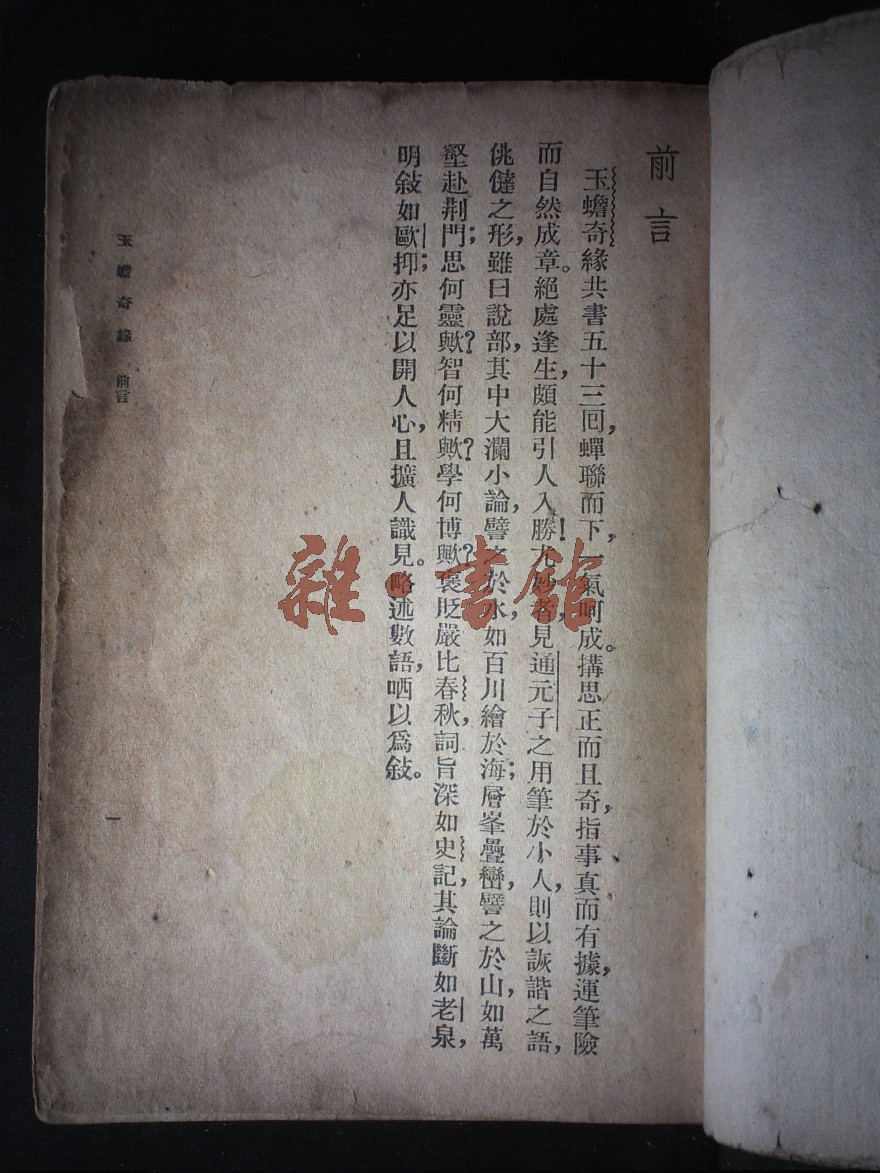 前言
玉蟾奇緣共書五十三回，蟬聯而下，一氣呵成。搆思正而且奇，指事真而有據，運筆險
而自然成章。絕處逢生，頗能引人入勝！尤妙者，見通元子之用筆於小人，則以詼諧之語，
佻㒓之形，雖曰說部，其中大瀾小論，譬之於水，如百川繪於海；層峯疊巒，譬之於山，如萬
壑赴荆門；思何靈歟？智何精歟？學何博歟？褒貶嚴比春秋，詞旨深如史記，其論斷如老泉，
明敍如歐；抑亦足以開人心，且擴人識見。略述數語，哂以爲敍。
玉蟾奇緣 前言
一
雜·書館